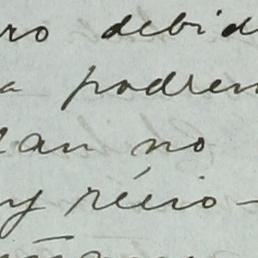 ro debid
a podrem
an no
y récio-